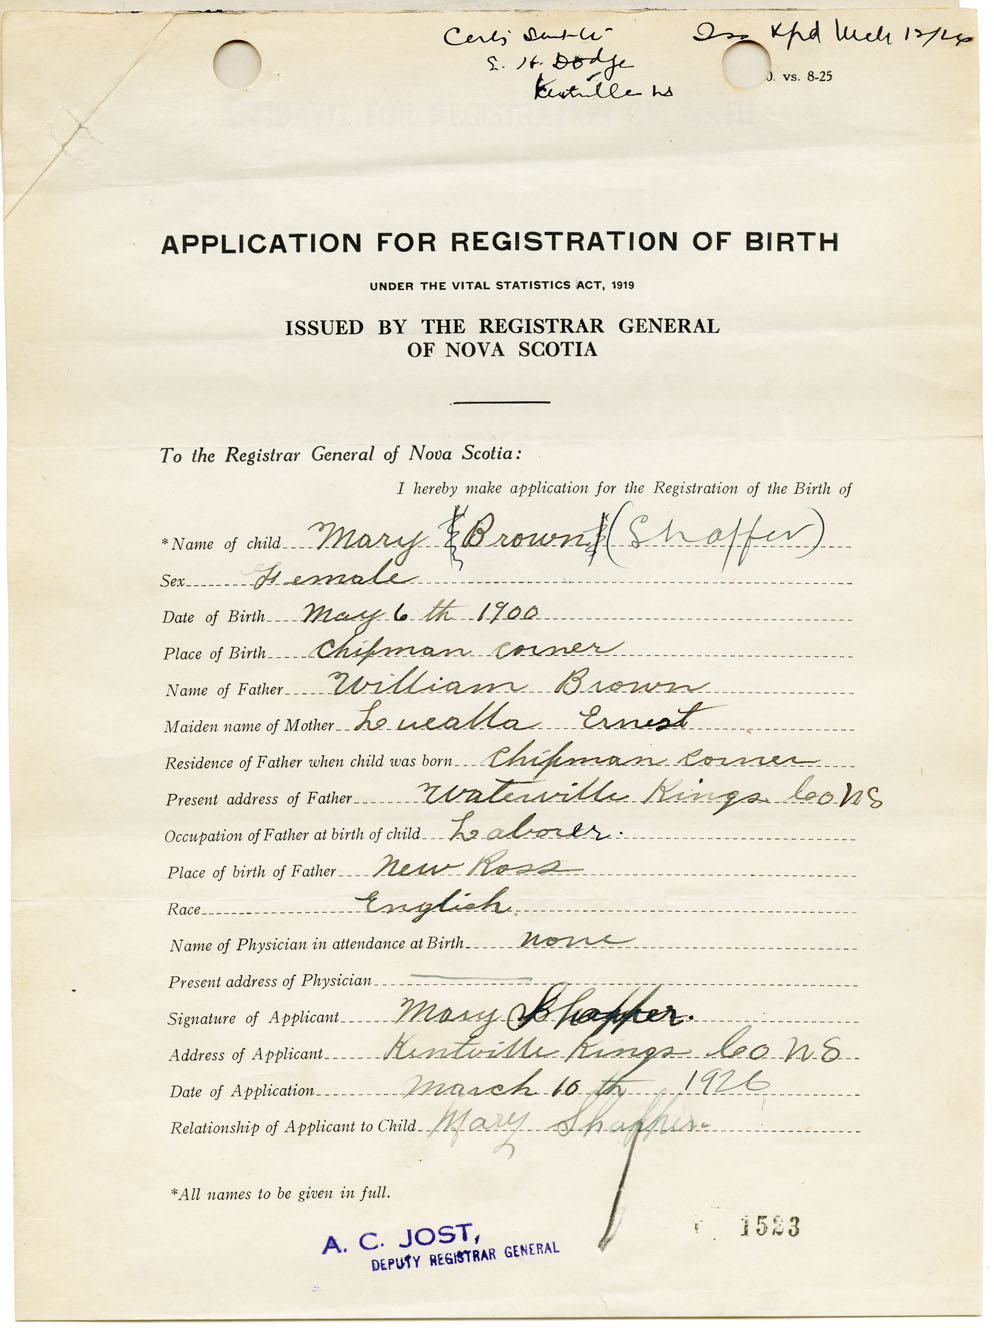 Certif Sent to
E. H. Dodge
Kentville NS
Kfd Mch 12/26
0. vs. 8-25
APPLICATION FOR REGISTRATION OF BIRTH
UNDER THE VITAL STATISTICS ACT, 1919
ISSUED BY THE REGISTRAR GENERAL
OF NOVA SCOTIA
To the Registrar General of Nova Scotia:
I hereby make application for the Registration of the Birth of
*Name of child Mary Brown (Shaffer)
Sex Female
Date of Birth May 6 th 1900
Place of Birth Chipman corner
Name of Father William Brown
Maiden name of Mother Luealla Ernest
Residence of Father when child was born Chipman corner
Present address of Father Waterville Kings Co NS
Occupation of Father at birth of child Laborer.
Place of birth of Father New Ross
Race English
Name of Physician in attendance at Birth none
Present address of Physician
Signature of Applicant Mary Shaffer.
Address of Applicant Kentville Kings Co NS
Date of Application March 10 th 1926
Relationship of Applicant to Child Mary Shaffer.
*All names to be given in full.
A. C. JOST,
DEPUTY REGISTRAR GENERAL
1523